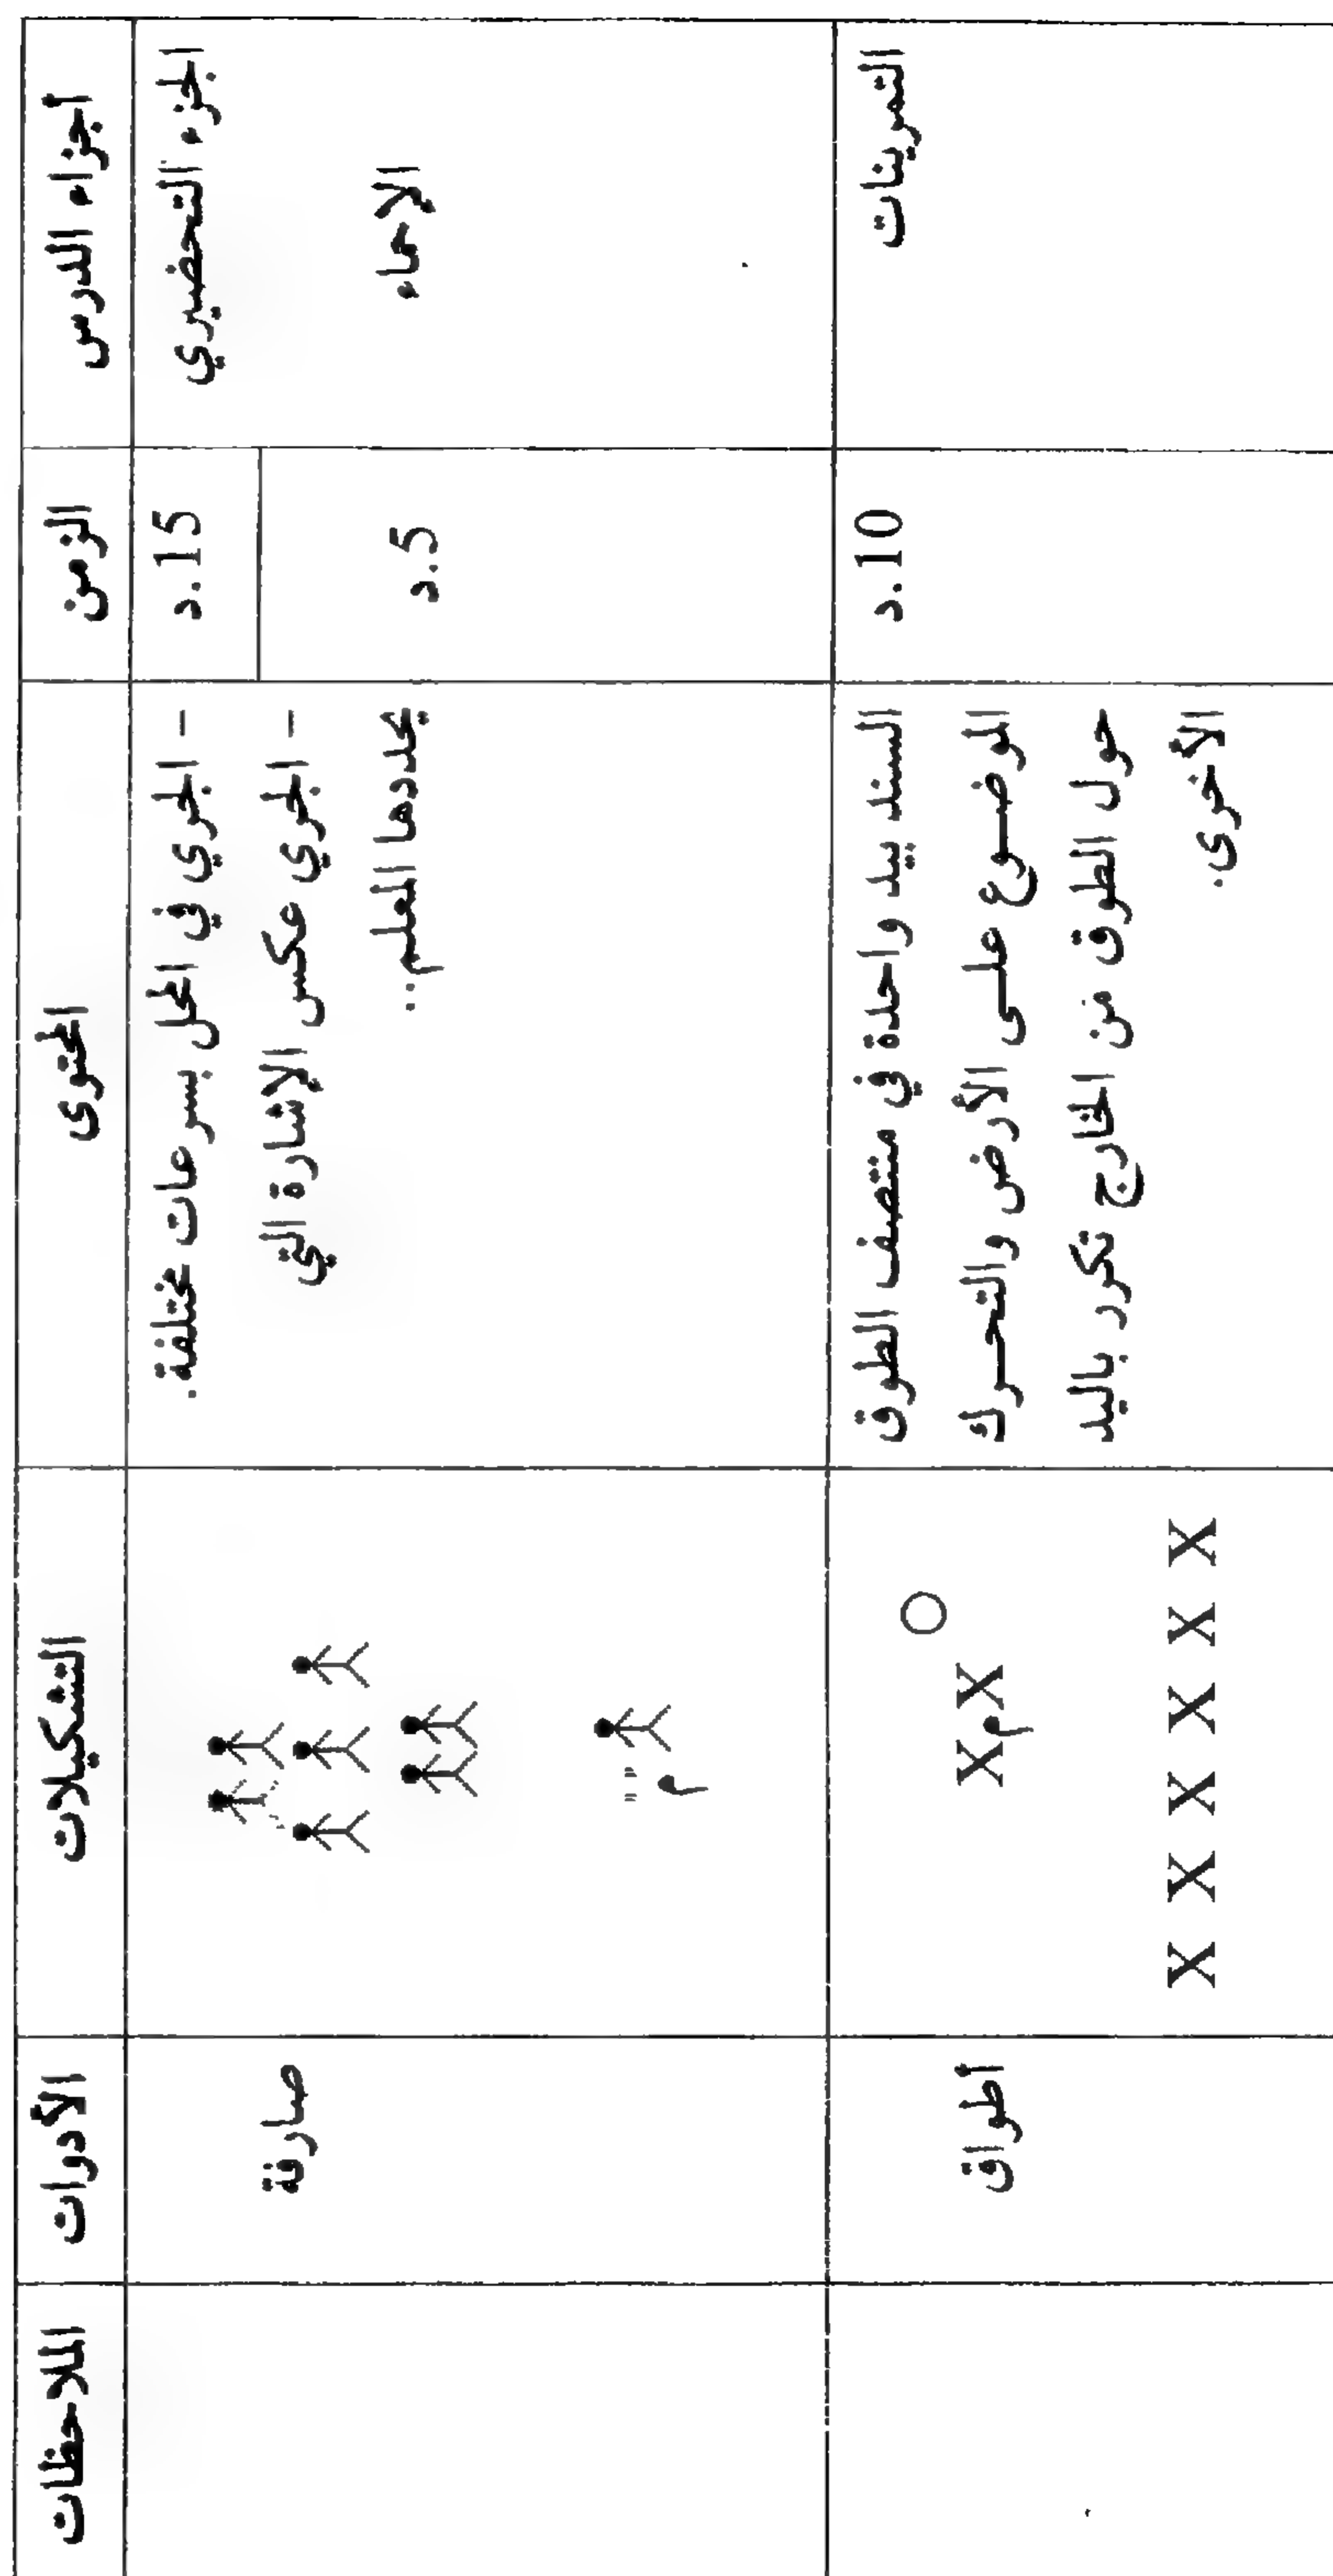 أجزاء الدرس
الزمن
المحتوى
التشكيلات
الأدوات
الملاحظات
الجزء التحضيري
الإحماء
15.د
5.د
- الجري في المحل بسرعات مختلفة.
- الجري عكس الإشارة التي
يحددها المعلم..
"م"
صارفة
التمرينات
10.د
السند بيد واحدة في منتصف الطوق
الموضوع على الأرض والتحرك
حول الطوق من الخارج تكرر باليد
الأخرى.
X م X
X X X X X X
أطواق